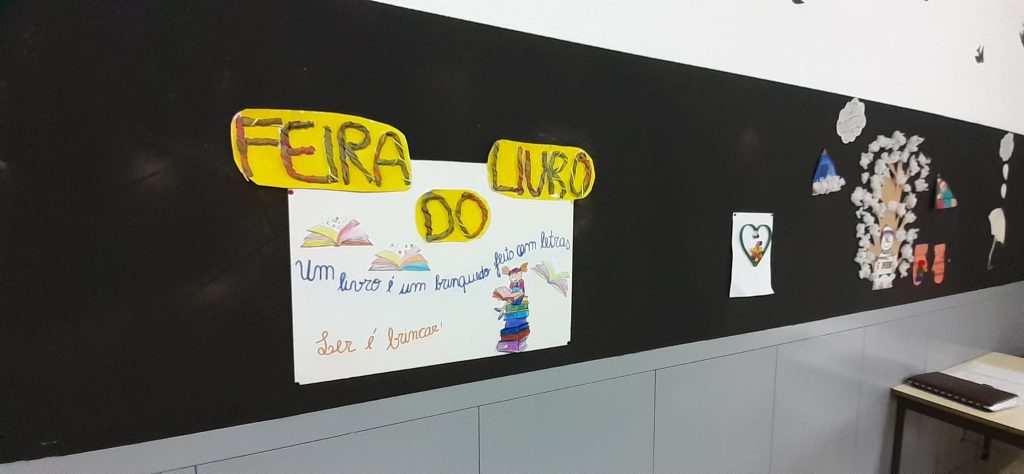 FEIRA
DO
LIVRO
Um livro é um brinquedo feito com letras
Ler é brincar!